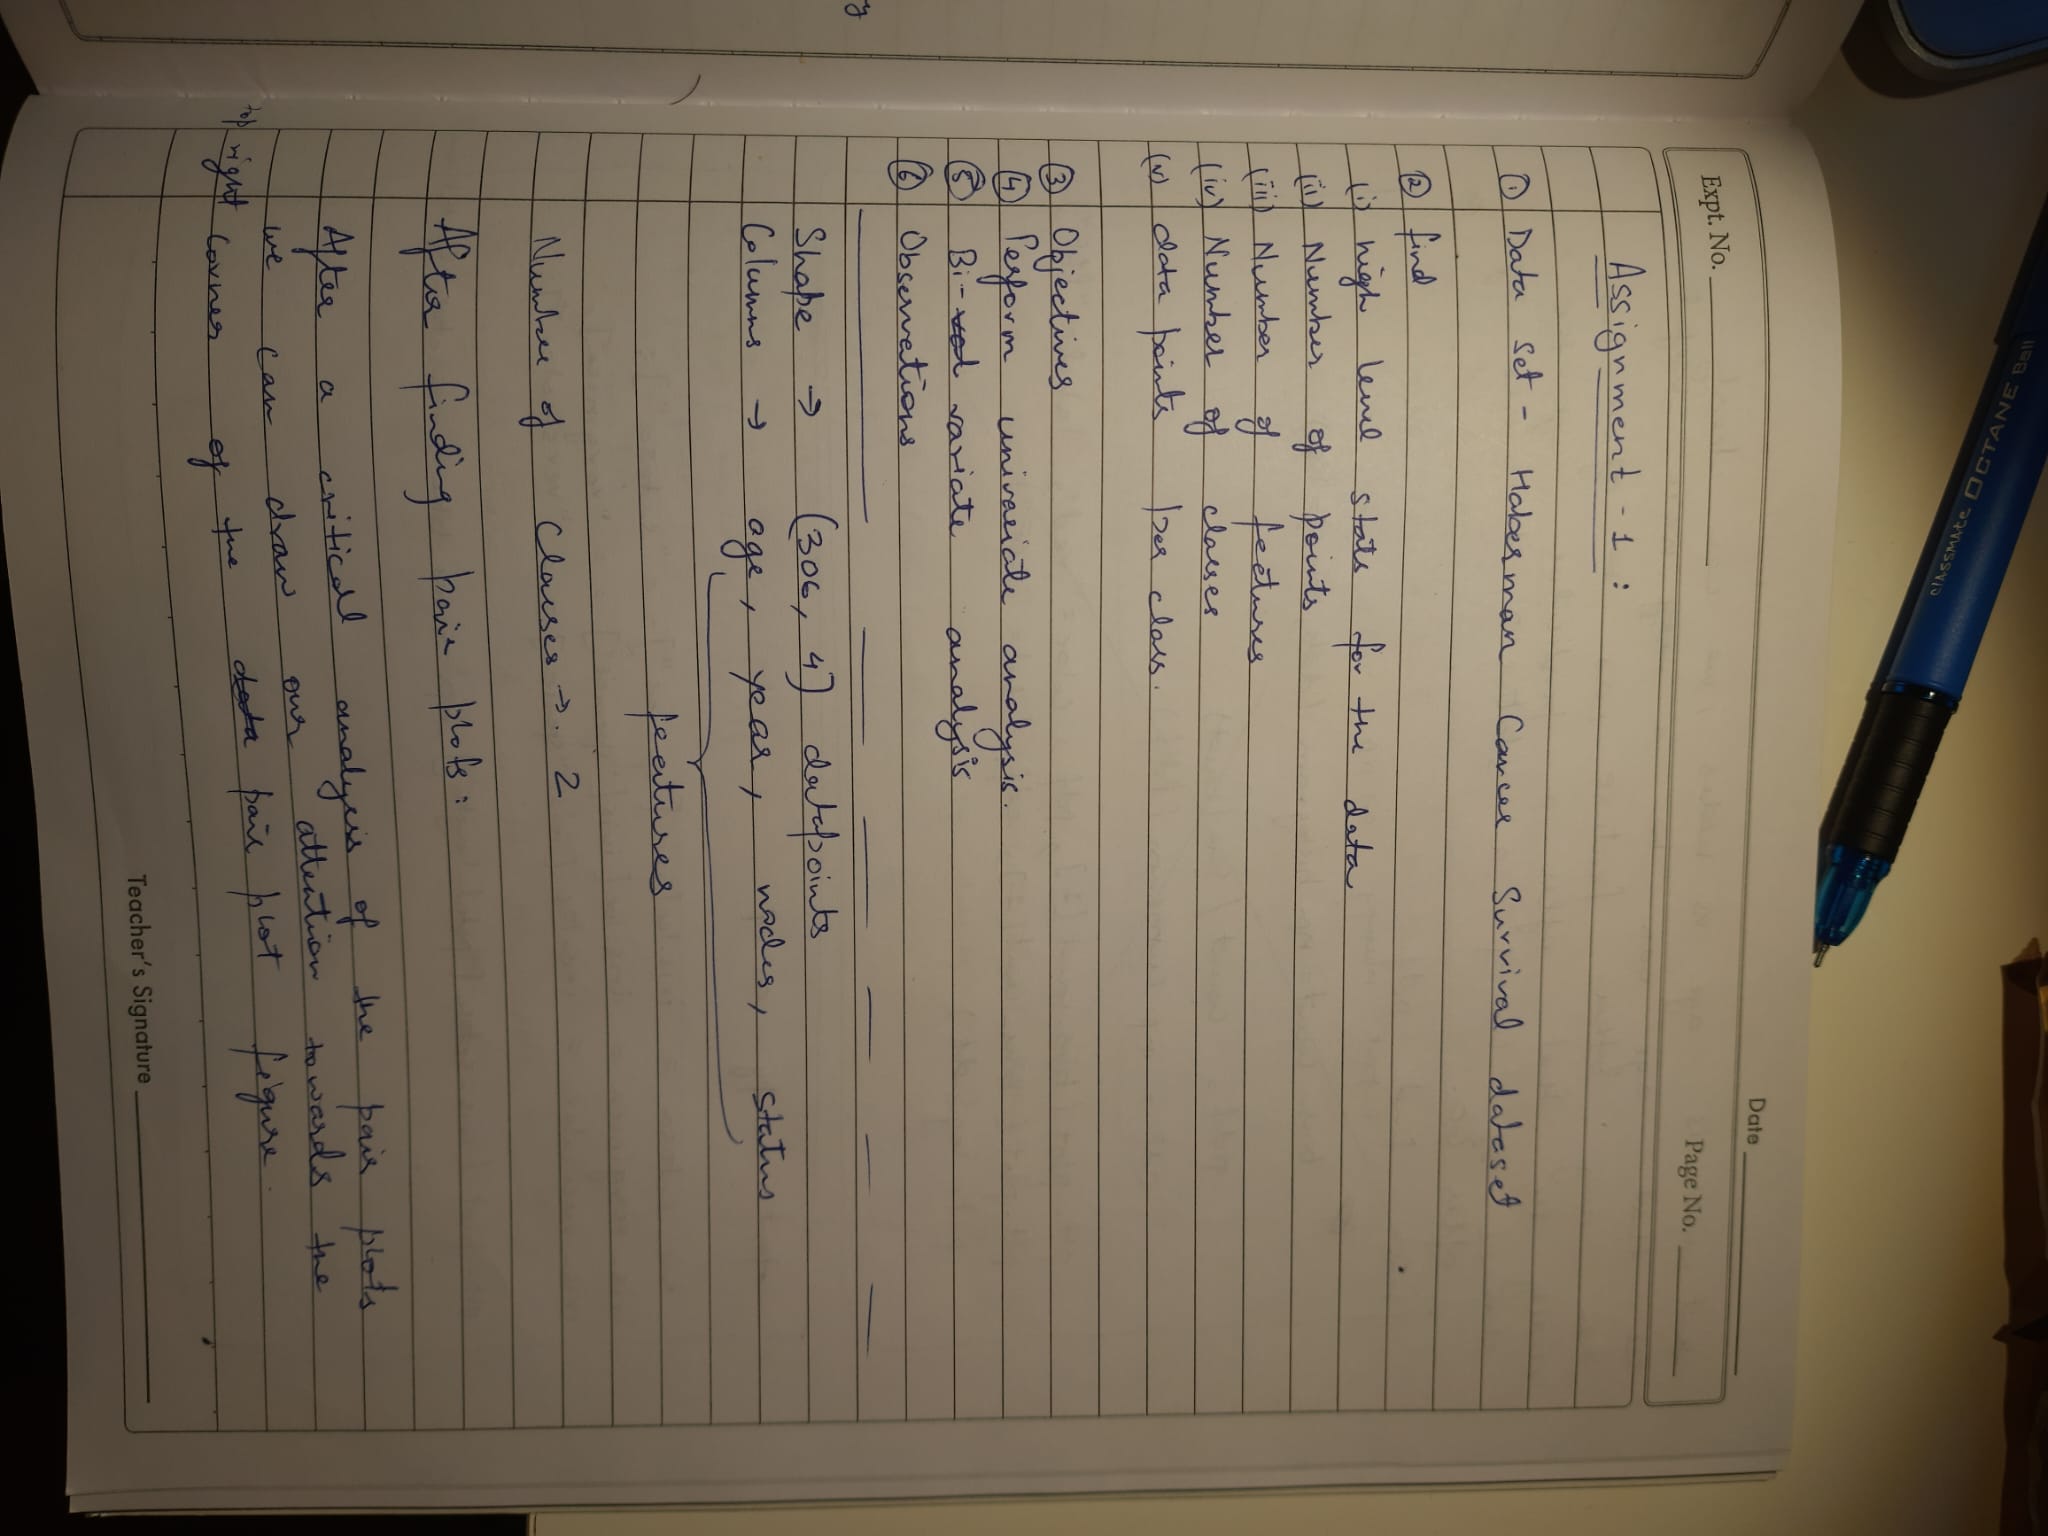 Date
Expt. No.
Page No.
Assignment - 1 :
(1) Data set - Haberman Cancer Survival dataset
(2) find
(i) high level stats for the data
(ii) Number of points
(iii) Number of features
(iv) Number of classes
(v) data points per class.
(3) Objectives
(4) Perform univariate analysis.
(5) Bi-variate analysis
(6) Observations
Shape → (306, 4) datapoints
Columns → age, year, nodes, status
features
Number of Classes → 2
After finding pair plots :
After a critical analysis of the pair plots
we can draw our attention towards the
top right corner of the data pair plot figure.
Teacher's Signature
classmate OCTANE Ball